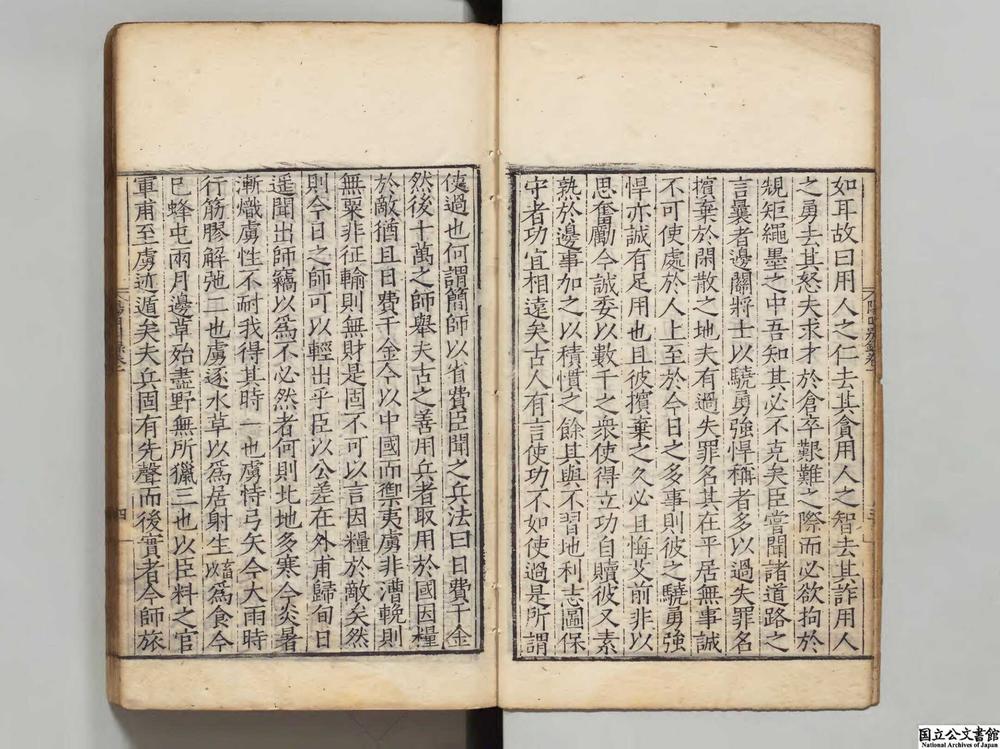 如耳故曰用人之仁去其貪用人之智去其詐用人
之勇去其怒夫求才於倉卒艱難之際而必欲拘於
規矩繩墨之中吾知其必不克矣臣嘗聞諸道路之
言曩者邊關將士以驍勇強悍稱者多以過失罪名
擯棄於閑散之地夫有過失罪名其在平居無事誠
不可使處於人上至於今日之多事則彼之驍勇強
悍亦誠有足用也且彼擯棄之久必且悔艾前非以
思奮勵今誠委以數千之衆使得立功自贖彼又素
熟於邊事加之以積慣之餘其與不習地利志圖保
守者功宜相遠矣古人有言使功不如使過是所謂
使過也何謂簡師以省費臣聞之兵法曰日費千金
然後十萬之師舉夫古之善用兵者取用於國因糧
於敵猶且日費千金今以中國而禦夷虜非漕輓則
無粟非征輸則無財是固不可以言因糧於敵矣然
則今日之師可以輕出乎臣以公差在外甫歸旬日
遥聞出師竊以爲不必然者何則北地多寒今炎暑
漸熾虜性不耐我得其時一也虜恃弓矢今大雨時
行筋膠解弛二也虜逐水草以爲居射生畜以爲食今
已蜂屯兩月邊草始盡野無所獵三也以臣料之官
軍甫至虜迹遁矣夫兵固有先聲而後實者今師旅
四
国立公文書館
National Archives of Japan